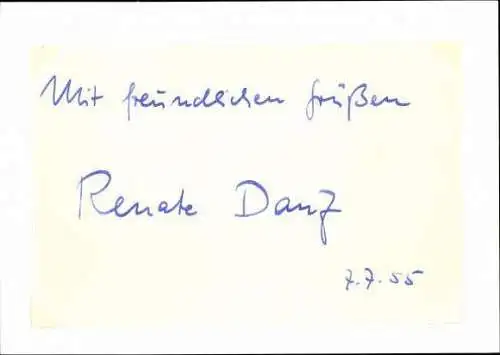 Mit freundlichen Grüßen
Renate Danz
7.7.55